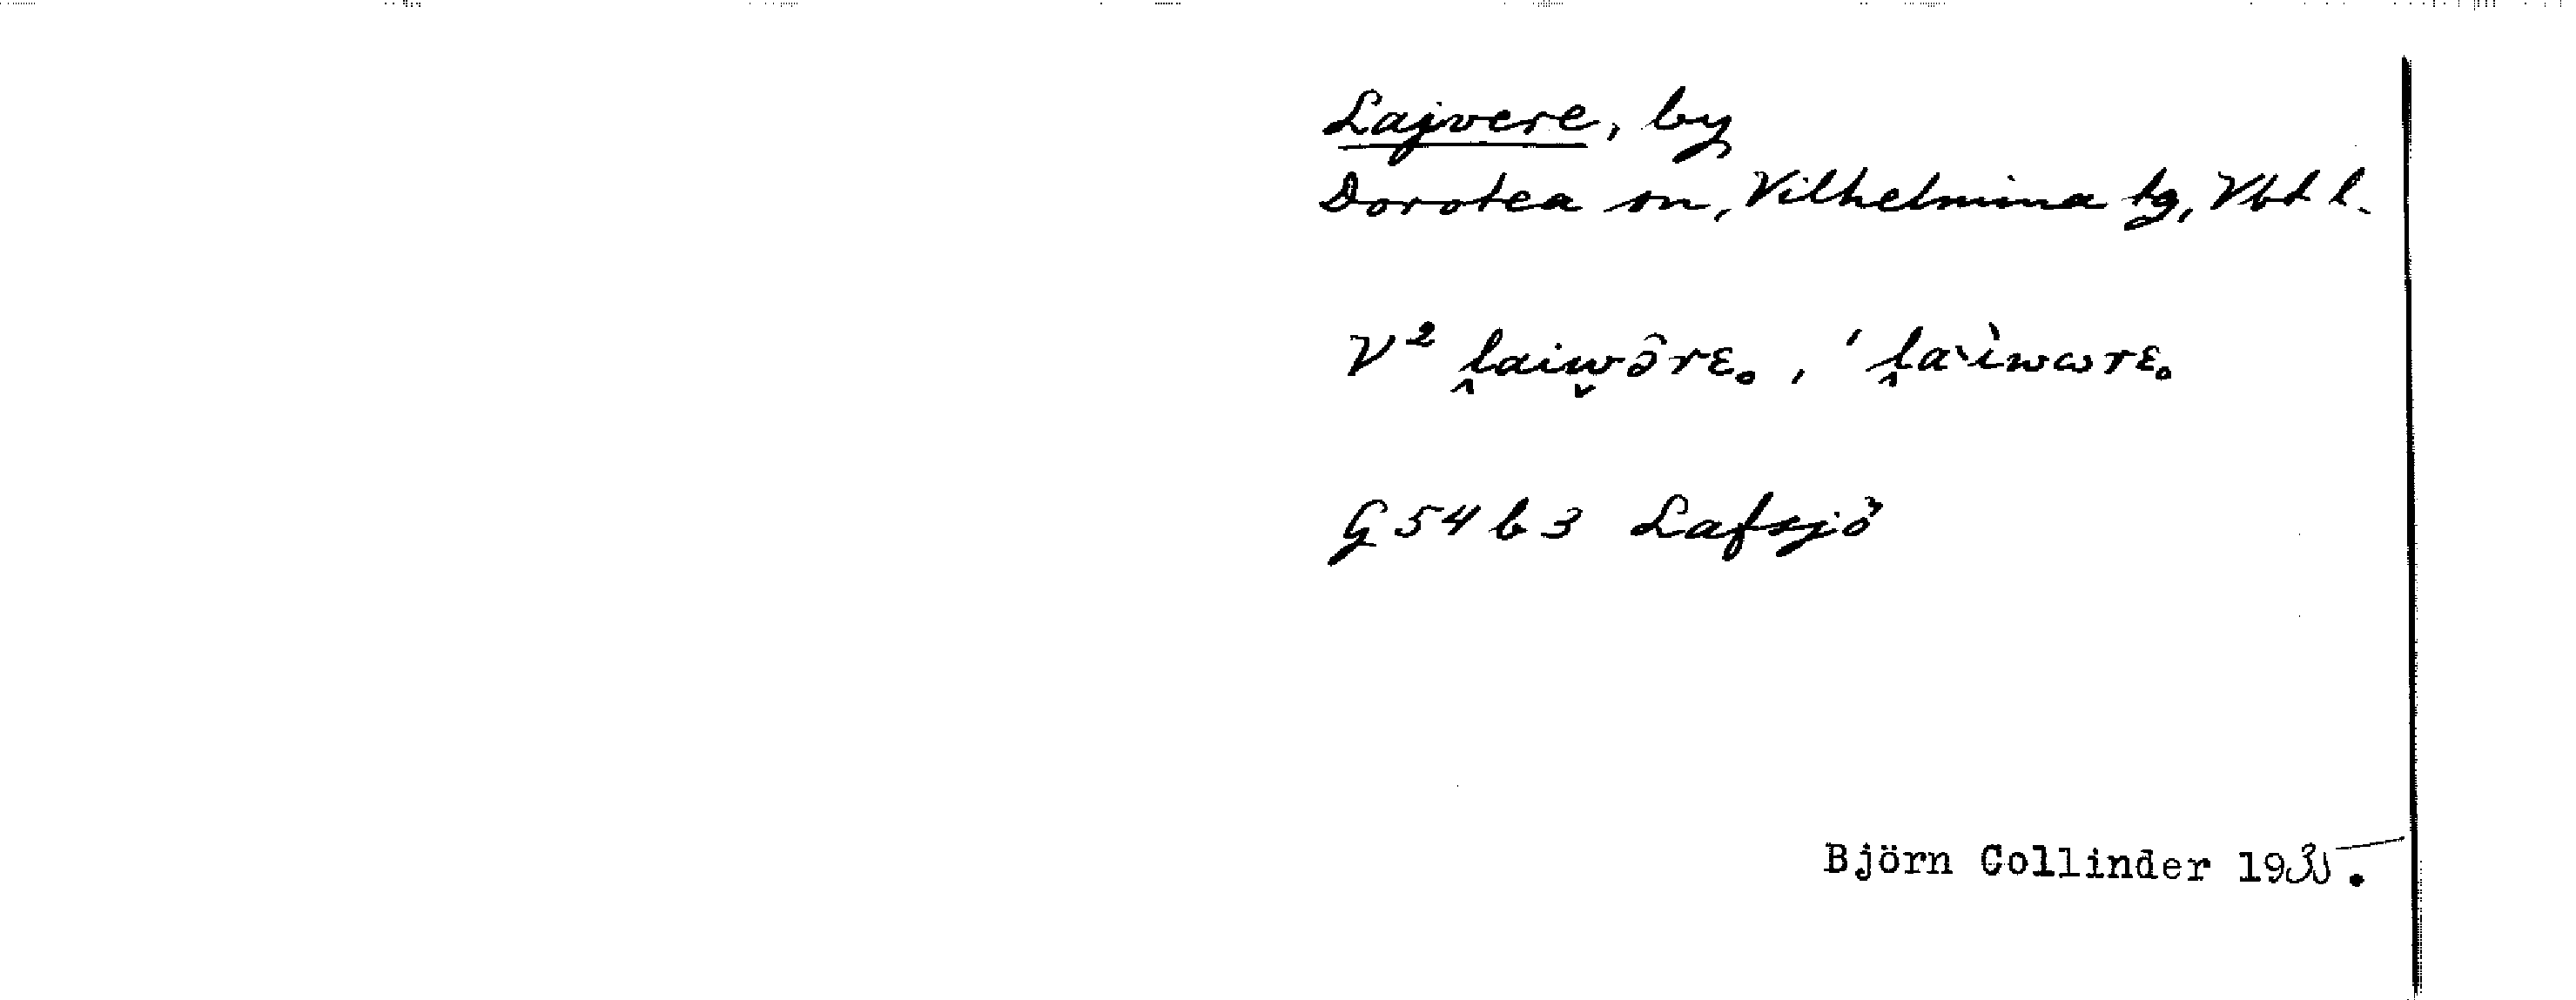 Lajvere, by
Dorotea sn, Vilhelmina tg, Vbt l.
V² ḽaiw̌ə̂rɛ˳, ' ḽa`ìwωrɛ˳
G 54 b 3 Lafsjö
Björn Collinder 1935.